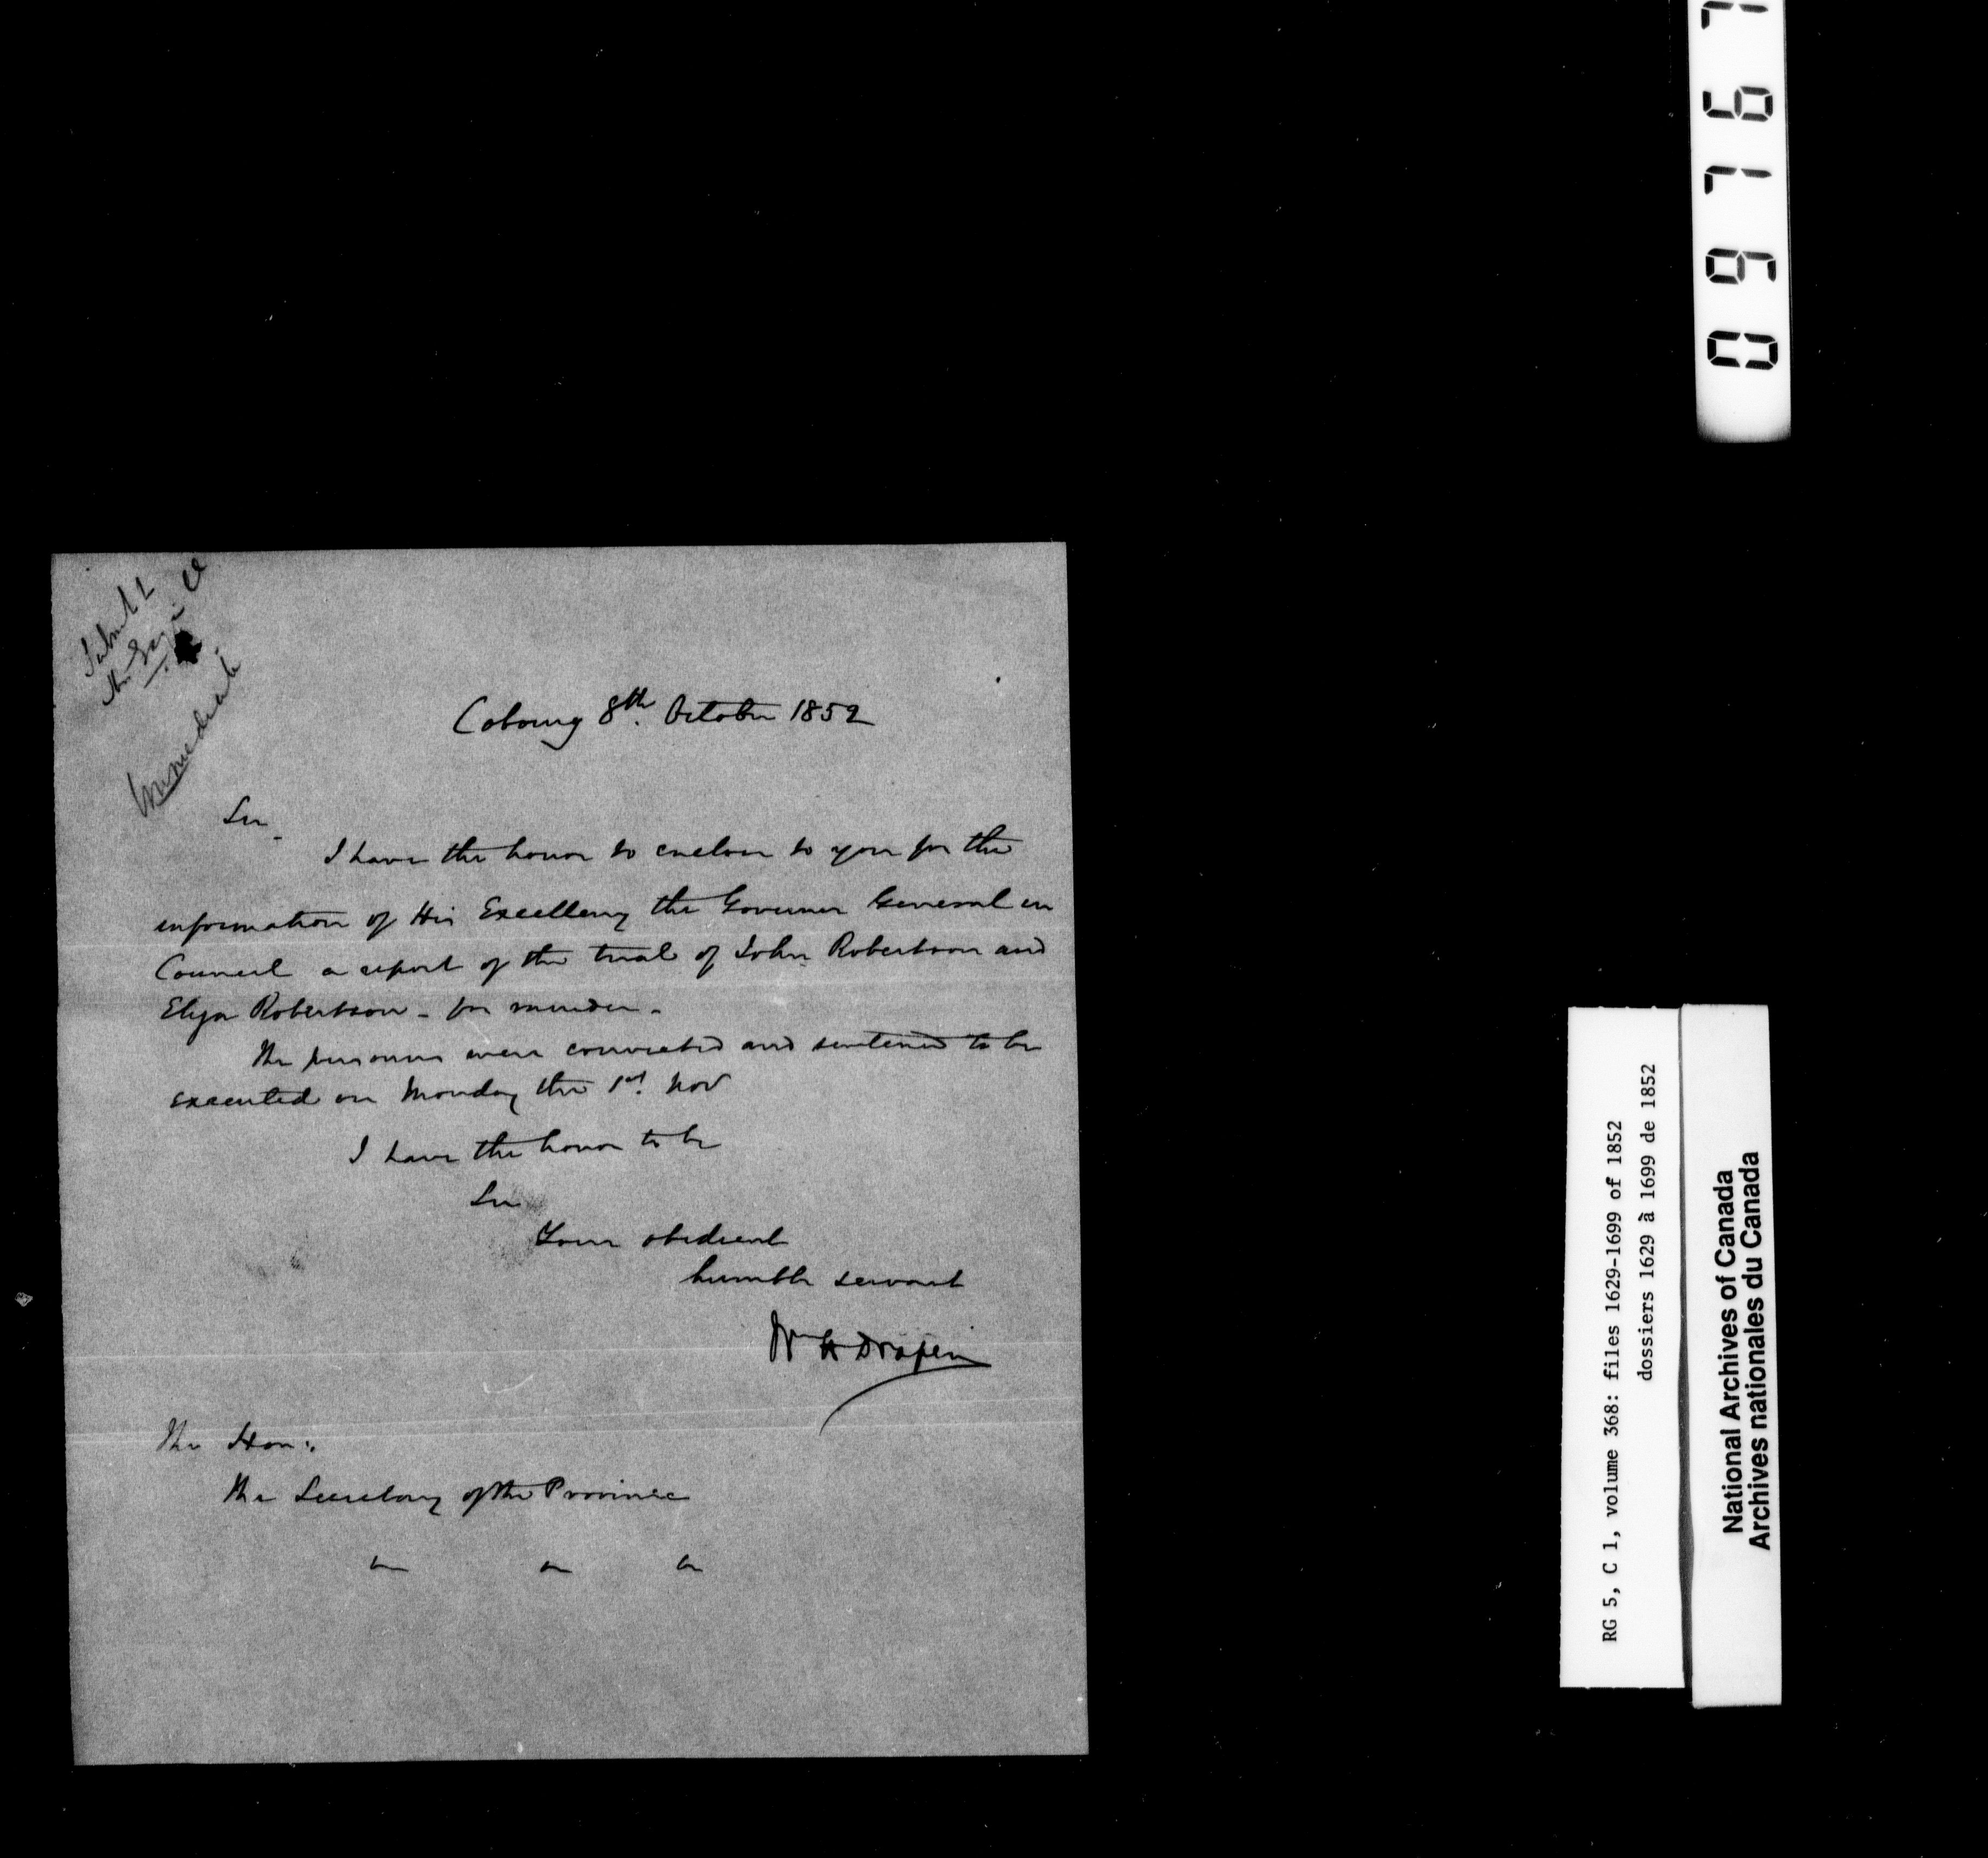 Submit
Immediate
Cobourg 8th. October 1852
Sir
I have the honor to enclose to you for the
information of His Excellency the Governor General in
Council a report of the trial of John Robertson and
Eliza Robertson - for murder.
The prisoners were convicted and sentenced to be
executed on Monday the 1st. Nov
I have the honor to be
Sir
Your obedient
humble servant
Wm H Draper
The Hon:
the Secretary of the Province
RG 5, C 1, volume 368: files 1629-1699 of 1852
dossiers 1629 à 1699 de 1852
National Archives of Canada
Archives nationales du Canada